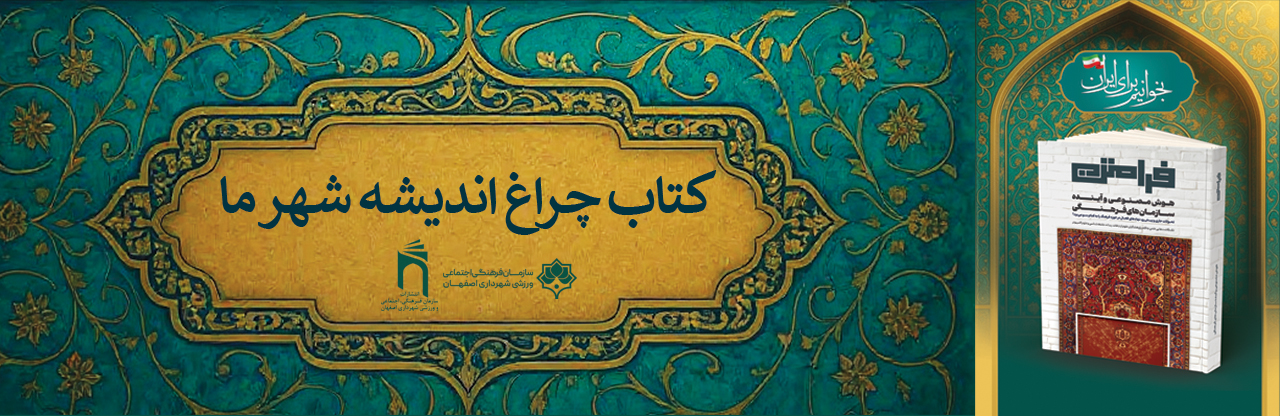 کتاب چراغ اندیشه شهر ما
سازمان فرهنگی اجتماعی
ورزشی شهرداری اصفهان
انتشارات
سازمان فرهنگی، اجتماعی
و ورزشی شهرداری اصفهان
بخوانیم برای ایران
فرامتن
هوش مصنوعی و آینده
سازمان‌های فرهنگی